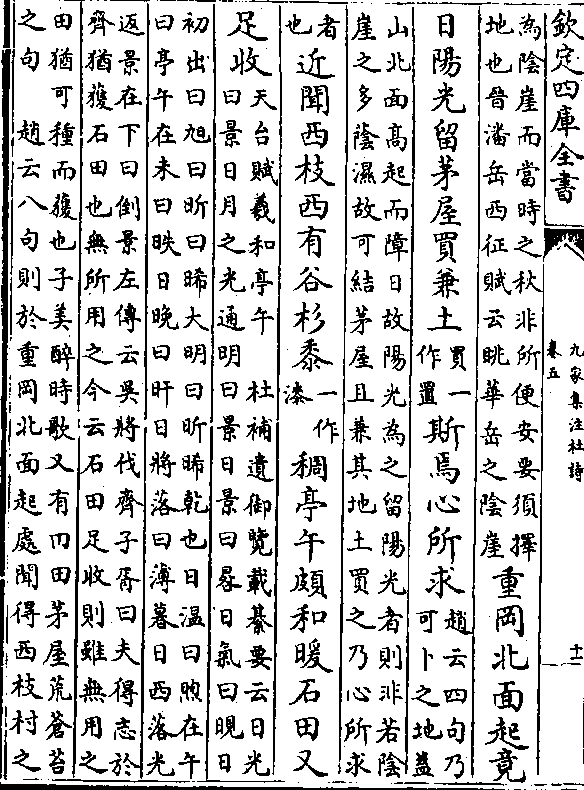 欽定四庫全書
九家集注杜詩
卷五
十二
為陰崖而當時之秋非所便安要須擇
地也晉潘岳西征賦云眺華岳之陰崖
重岡北面起竟
日陽光留茅屋買兼土
買一
作置
斯焉心所求
趙云四句乃
可卜之地蓋
山北面高起而障日故陽光為之留陽光者則非若陰
崖之多蔭濕故可結茅屋且兼其地土買之乃心所求
者
也
近聞西枝西有谷杉黍
一作
漆
稠亭午頗和暖石田又
足收
天台賦羲和亭午 杜補遺御覽載纂要云日光
曰景日月之光通明曰景日景曰晷日氣曰晛日
初出曰旭日昕曰晞大明曰昕晞乾也日溫曰煦在午
曰亭午在未曰昳日晚曰旰日將落曰薄暮日西落光
返景在下曰倒景左傳云吳將伐齊子胥曰夫得志於
齊猶獲石田也無所用之今云石田足收則雖無用之
田猶可種而穫也子美醉時歌又有石田茅屋荒蒼苔
之句 趙云八句則於重岡北面起處聞得西枝村之